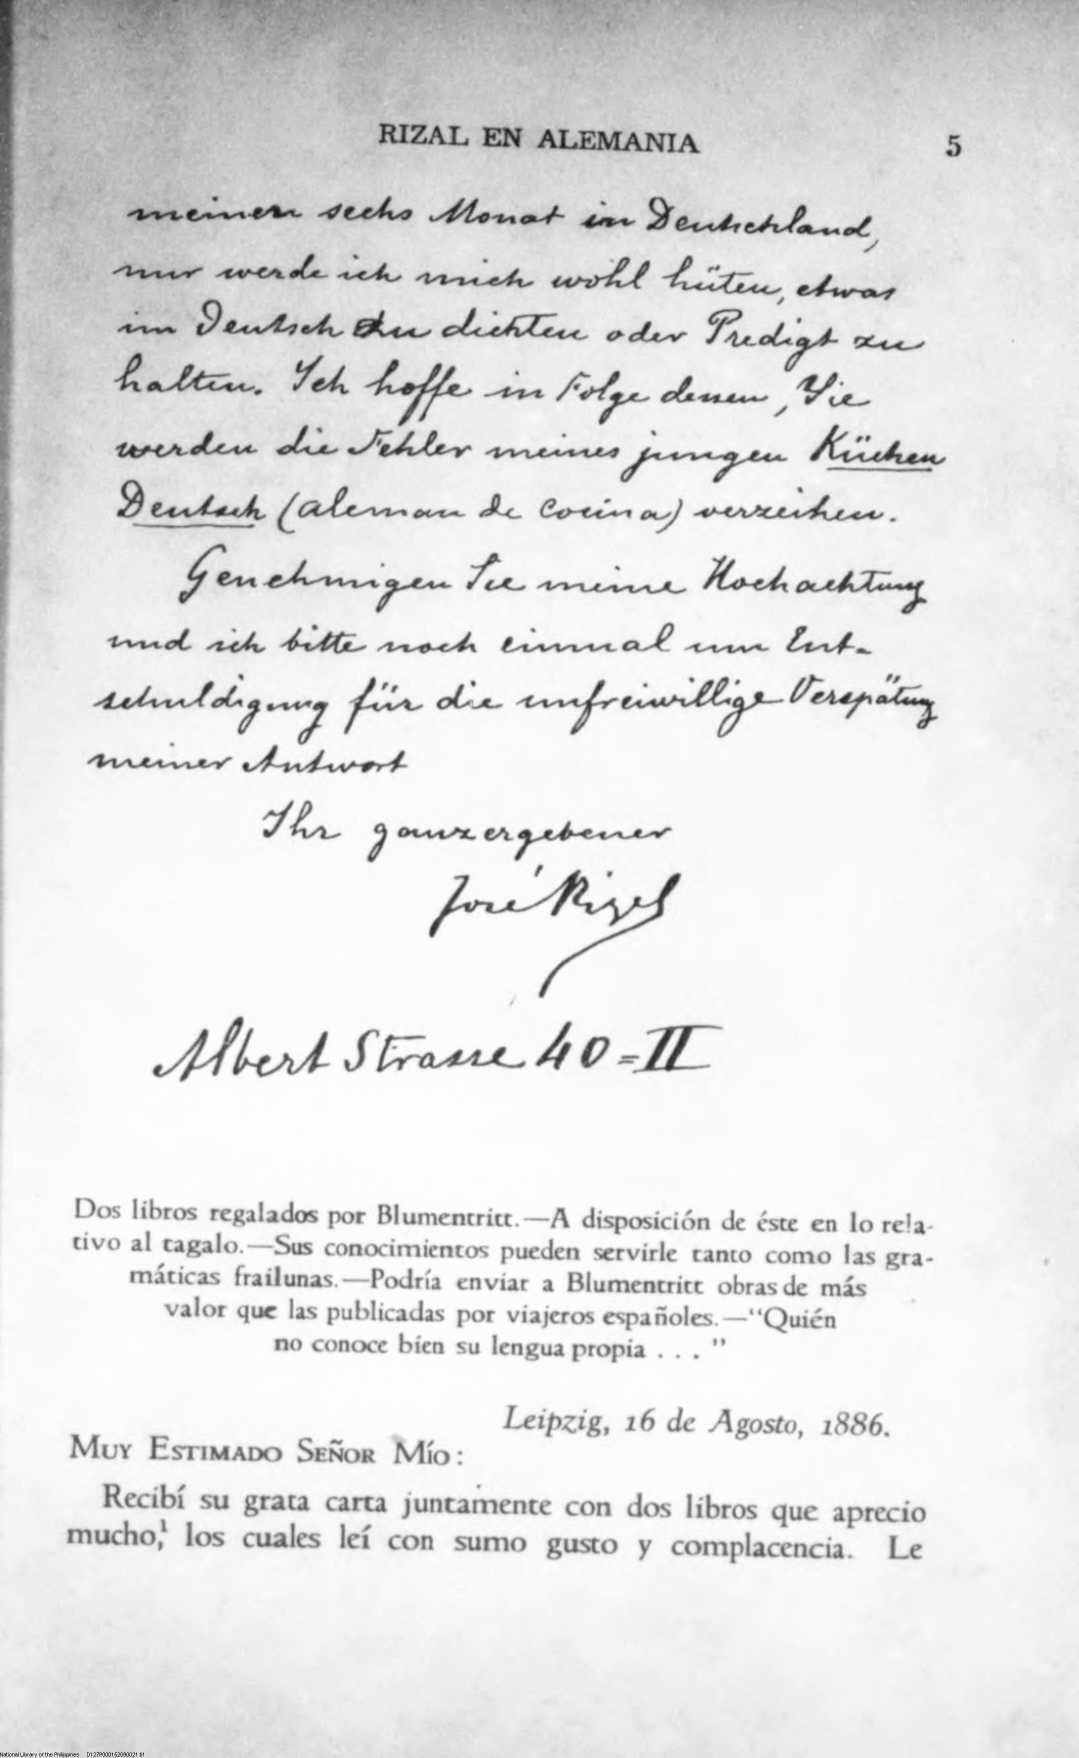 RIZAL EN ALEMANIA 5
meinen sechs Monat in Deutschland,
nur werde ich mich wohl hüten, etwas
im Deutsch zu dichten oder Predigt zu
halten. Ich hoffe in Folge dessen, Sie
werden die Fehler meines jungen Küchen
Deutsch (aleman de cocina) verzeihen.
Genehmigen Sie meine Hochachtung
und ich bitte noch einmal um Ent-
schuldigung für die unfreiwillige Verspätung
meiner Antwort
Ihr ganzergebener
José Rizal
Albert Strasse 40=II
Dos libros regalados por Blumentritt.—A disposición de éste en lo rela-
tivo al tagalo.—Sus conocimientos pueden servirle tanto como las gra-
máticas frailunas.—Podría enviar a Blumentritt obras de más
valor que las publicadas por viajeros españoles.—“Quién
no conoce bien su lengua propia . . . ”
Leipzig, 16 de Agosto, 1886.
MUY ESTIMADO SEÑOR MÍO:
Recibí su grata carta juntamente con dos libros que aprecio
mucho,¹ los cuales leí con sumo gusto y complacencia. Le
National Library of the Philippines D127P000152090021.tif